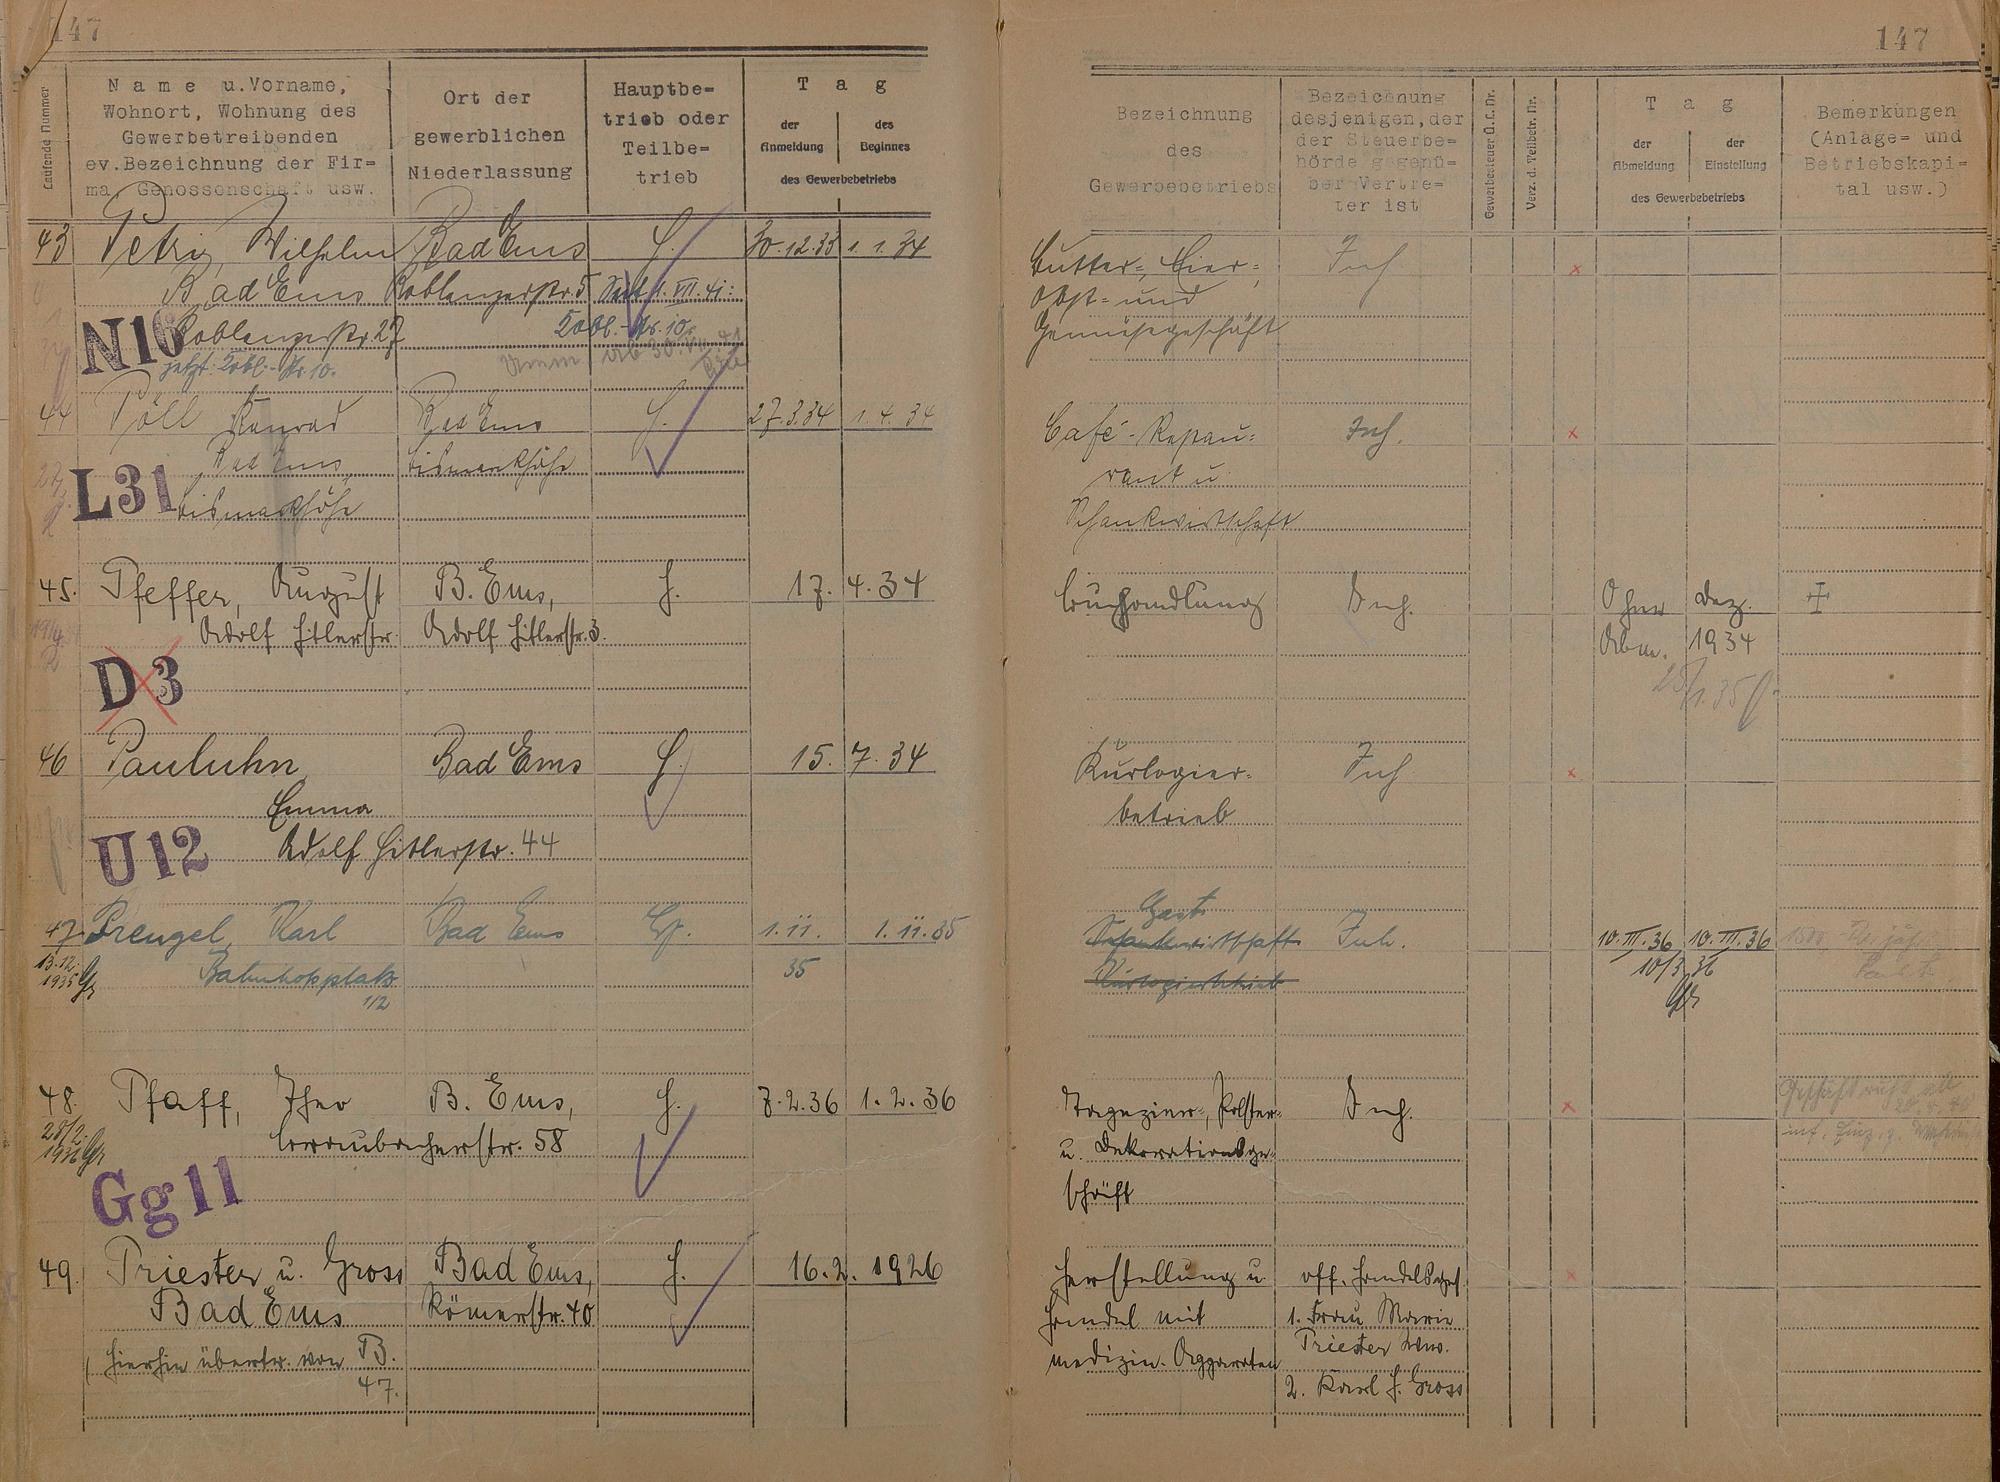 147
147
Laufende Nummer
Name u. Vorname,
Wohnort, Wohnung des
Gewerbetreibenden
ev. Bezeichnung der Fir=
ma, Genossenschaft usw.
Ort der
gewerblichen
Niederlassung
Hauptbe=
trieb oder
Teilbe=
trieb
Tag
der Anmeldung
des Beginnes
des Gewerbebetriebs
Bezeichnung
des
Gewerbebetriebs
Bezeichnung
desjenigen, der
der Steuerbe=
hörde gegenü=
ber Vertre=
ter ist
Gewerbesteuer d. L. Nr.
Verz. d. Teilbetr. Nr.
Tag
der Abmeldung
der Einstellung
des Gewerbebetriebs
Bemerkungen
(Anlage= und
Betriebskapi=
tal usw.)
43 Petri, Wilhelm Bad Ems H. 30.12.33 1.1.34 Butter=, Eier=, Inh
Bad Ems Koblenzerstr. 5 Seit 1. VII. 41: Obst= und
N16 Koblenzerstr. 27 Kobl.-Str. 10. Gemüsegeschäft
jetzt: Kobl.-Str. 10.
44 Pöll Konrad Bad Ems H. 27.3.34 1.4.34 Café-Restau= Inh.
Bad Ems, Bismarkhöhe rant u
L31 Bismarkhöhe Schankwirtschaft
45. Pfeffer, August B. Ems, H. 17.4.34 Buchhandlung Inh. Ohne Dez.
Adolf Hitlerstr. Adolf Hitlerstr. 3. Abm. 1934
D3
46 Pauluhn, Bad Ems H. 15.7.34 Kurlogier= Inh
Emma betrieb
U12 Adolf Hitlerstr. 44
Gast
47. Prengel, Karl Bad Ems 1.11. 1.11.35 Schankwirtschaft Inh. 10.III.36 10.III.36
13.12. 1935 Bahnhofplatz 35 Kurlogierbetrieb 10/3 36
1/2
48. Pfaff, Theo B. Ems, H. 7.2.36 1.2.36 Tapezier-, Polster= Inh.
Braubacherstr. 58 u. Dekorationsge=
Gg11 schäft
49. Priester u. Gross Bad Ems, H. 16.2.1926 Herstellung u. off. Handelsges.
Bad Ems Römerstr. 40 Handel mit 1. Frau Marie
(hierhin übertr. von B. medizin. Apparaten Priester Wwe.
47. 2. Karl H. Gross